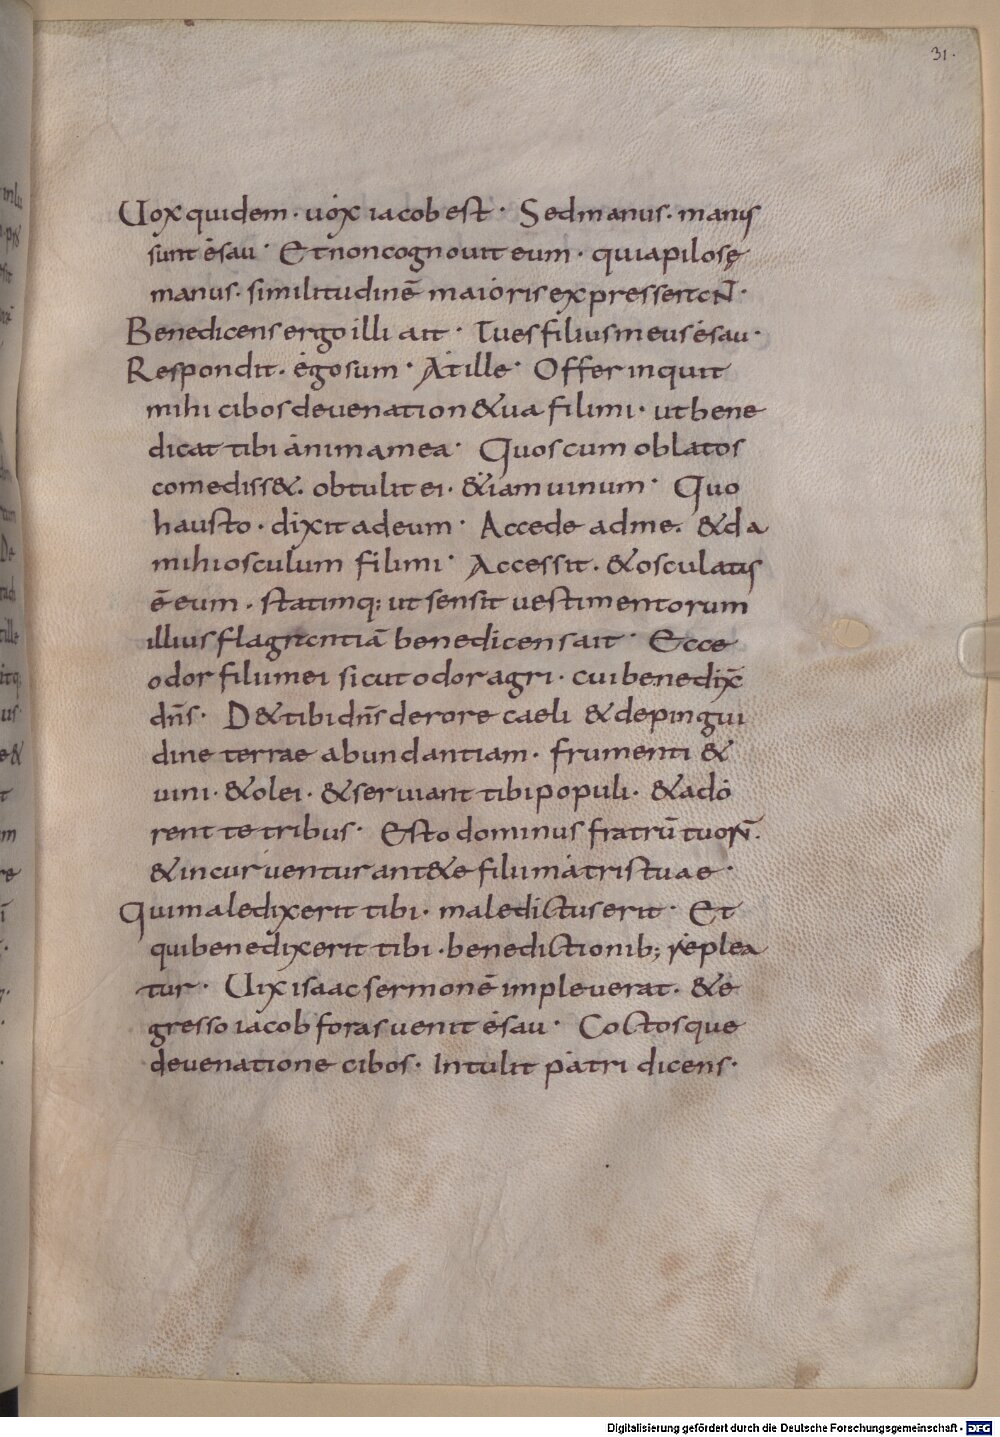 31.
Uox quidem · uox iacob est · Sed manus · manus
sunt esau · Et non cognouit eum · quia pilosę
manus · similitudinē maioris expresserant ·
Benedicens ergo illi ait · Tu es filius meus esau ·
Respondit · ego sum · At ille · Offer inquit
mihi cibos de uenation&ua fili mi · ut bene
dicat tibi anima mea · Quos cum oblatos
comediss& · obtulit ei · &iam uinum · Quo
hausto · dixit ad eum · Accede ad me · &da
mihi osculum fili mi · Accessit · &osculatus
ē eum · statimq; ut sensit uestimentorum
illius flagrentiā benedicens ait · Ecce
odor filii mei sicut odor agri · cui benedix̄
dn̄s · D&tibi dn̄s de rore caeli &de pingui
dine terrae abundantiam · frumenti &
uini · &olei · &seruiant tibi populi · &ado
rent te tribus · Esto dominus fratrū tuoR̄ ·
&incuruentur ant&e filii matris tuae ·
Qui maledixerit tibi · maledictus erit · Et
qui benedixerit tibi · benedictionib; replea
tur · Uix isaac sermonē impleuerat · &e
gresso iacob foras uenit esau · Coctosque
de uenatione cibos · Intulit patri dicens ·
Digitalisierung gefördert durch die Deutsche Forschungsgemeinschaft - DFG